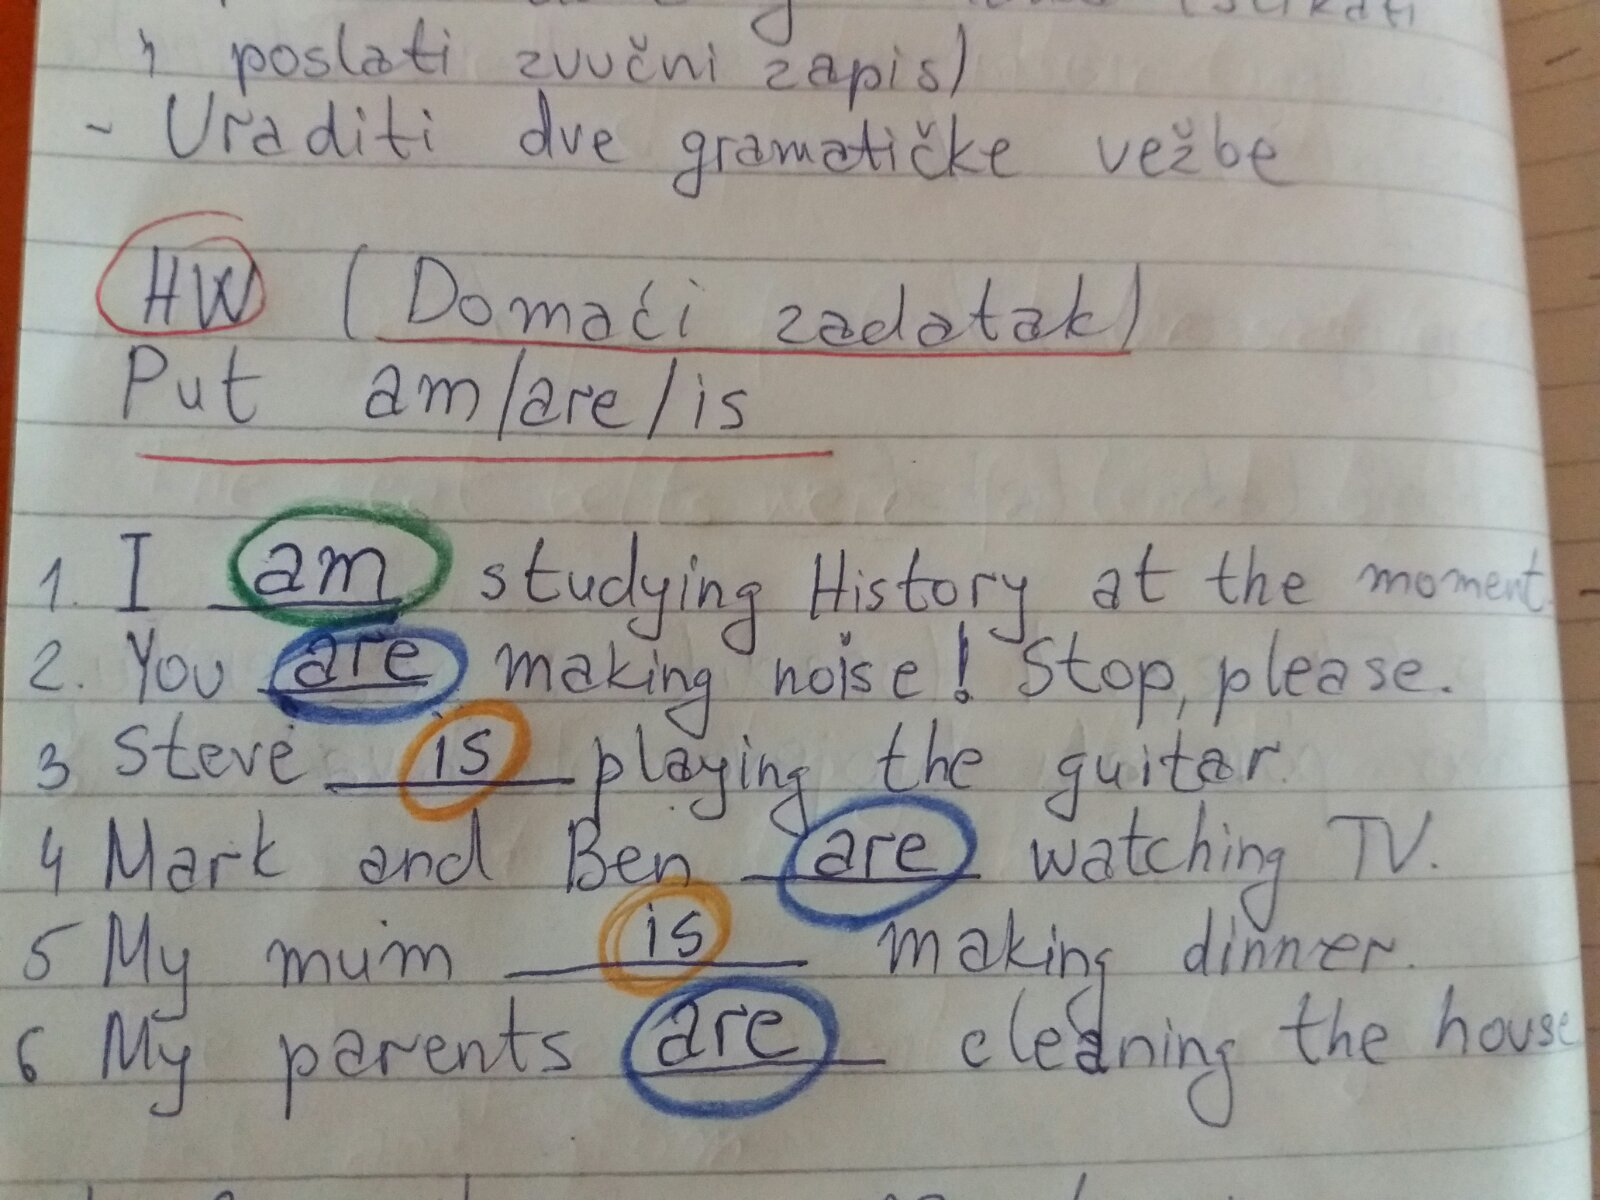 poslati zvučni zapis)
- Uraditi dve gramatičke vežbe
HW (Domaći zadatak)
Put am/are/is
1. I am studying History at the moment.
2. You are making noise! Stop, please.
3 Steve is playing the guitar.
4 Mark and Ben are watching TV.
5 My mum is making dinner.
6 My parents are cleaning the house